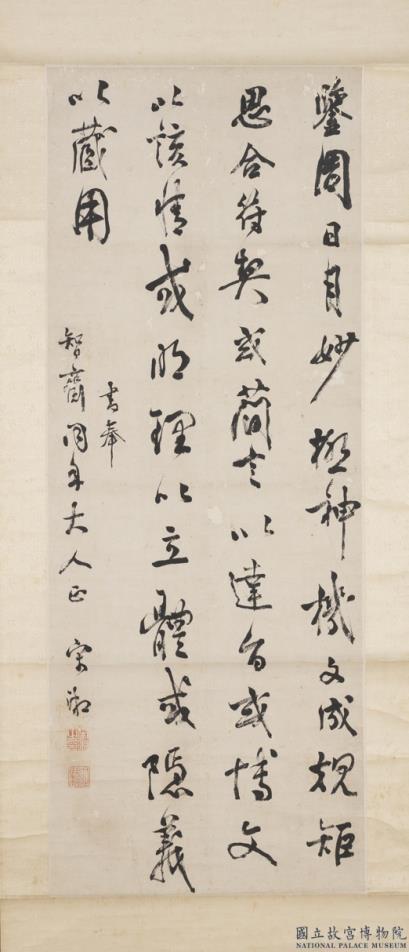 鑒周日月妙極神機文成規矩
思合符契或蕳言以達旨或博文
以該情或明理以立體或隱義
以藏用
書奉
智齋同年大人正 宋湘
國立故宮博物院
NATIONAL PALACE MUSEUM